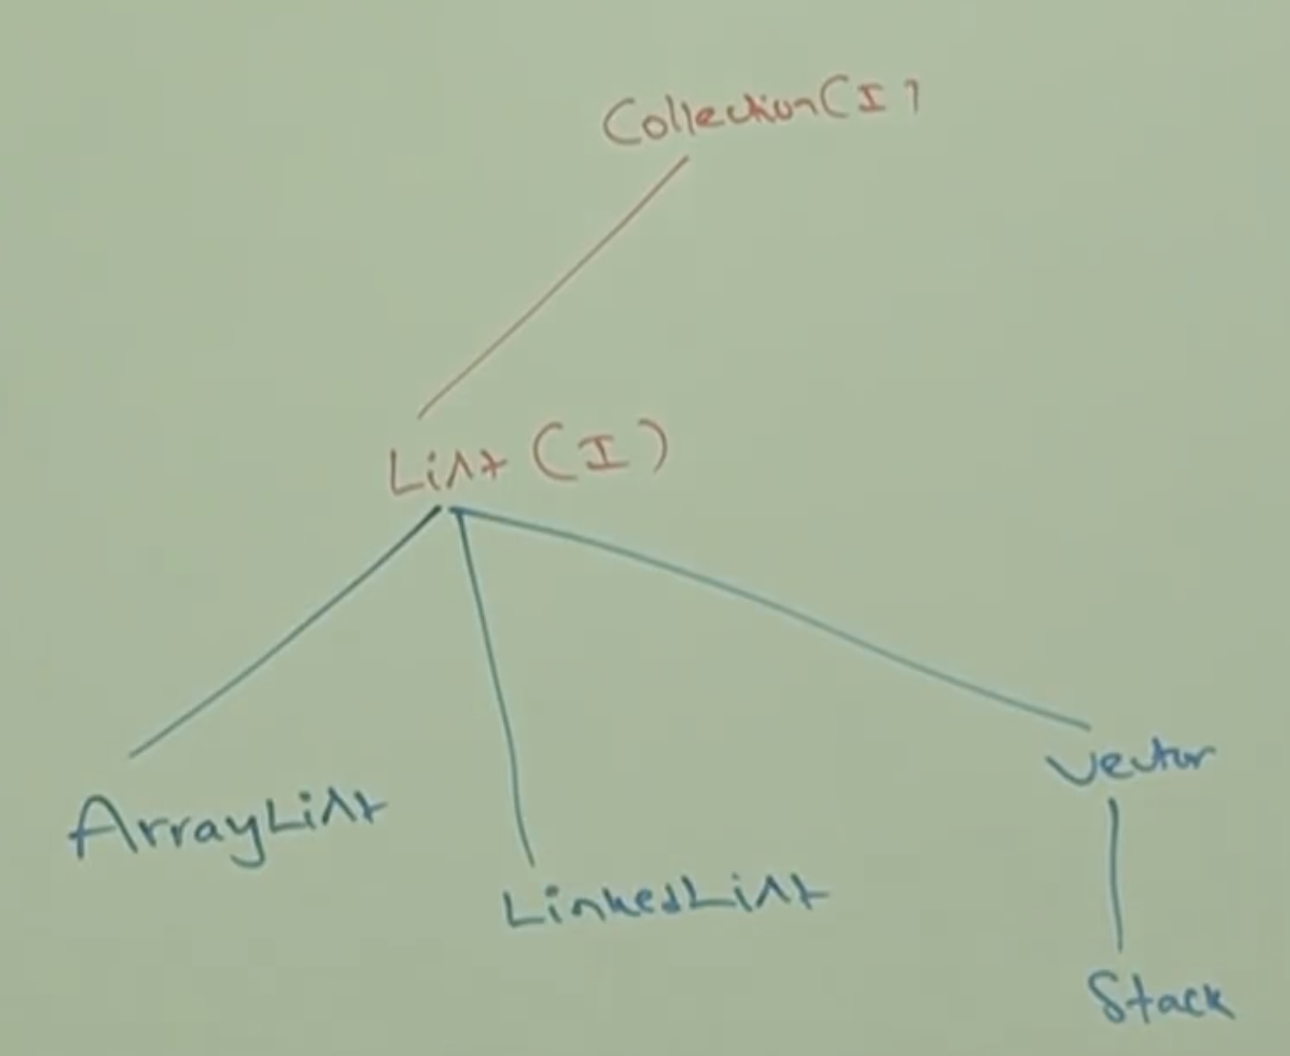 Collection(I)
List (I)
ArrayList
LinkedList
Vector
Stack